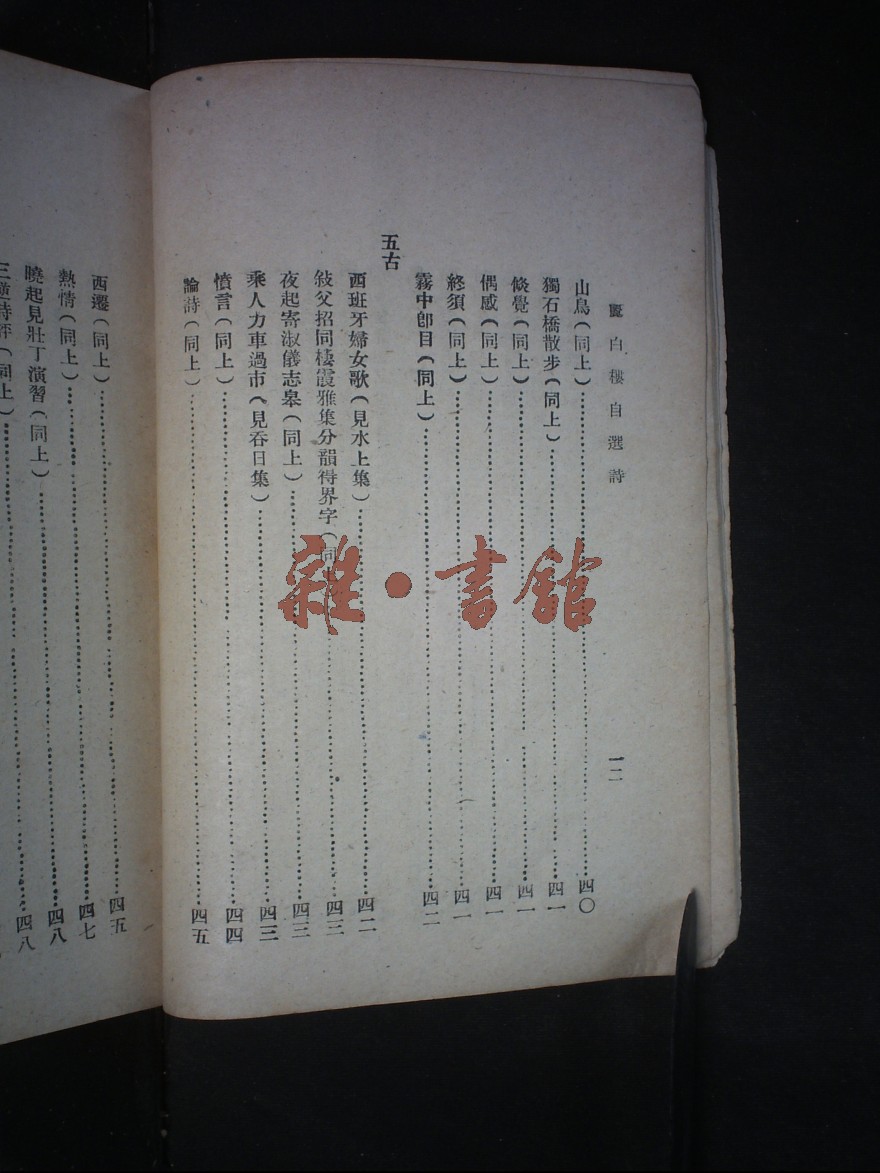 白樓自選詩 一二
山鳥(同上)……四〇
獨石橋散步(同上)……四一
倏覺(同上)……四一
偶感(同上)……四一
終須(同上)……四一
霧中卽目(同上)……四二
五古
西班牙婦女歌(見水上集)……四二
敍父招同棲霞雅集分韻得界字(同上)……四三
夜起寄淑儀志皋(同上)……四三
乘人力車過市(見吞日集)……四三
憤言(同上)……四四
論詩(同上)……四五
西遷(同上)……四五
熱情(同上)……四七
曉起見壯丁演習(同上)……四八
同上)……四八
雜·書館